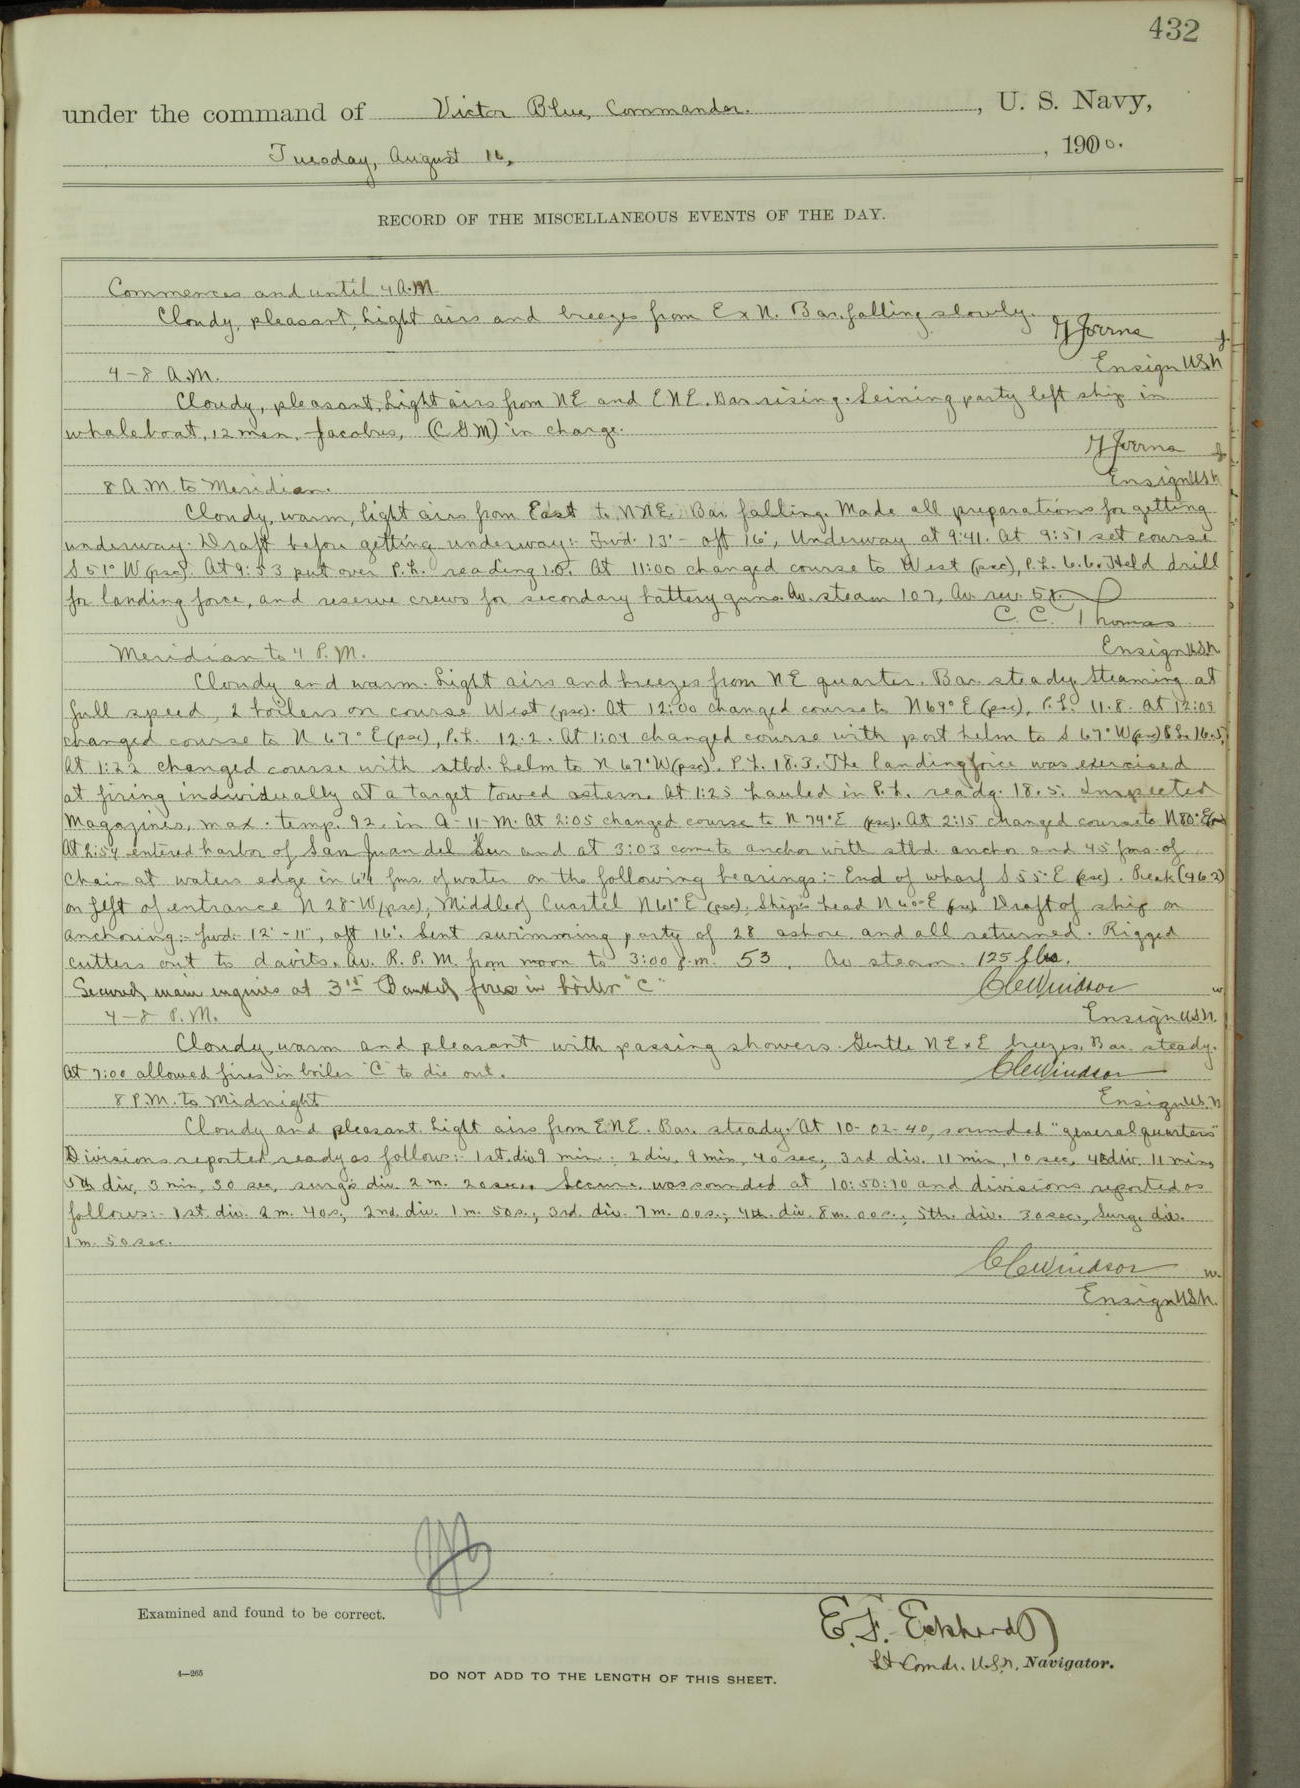 432
under the command of Victor Blue, Commander. , U. S. Navy,
Tuesday, August 16, , 1900.
RECORD OF THE MISCELLANEOUS EVENTS OF THE DAY.
Commences and until 4 A.M.
Cloudy, pleasant, Light airs and breezes from E x N. Bar. falling slowly.
Ensign U.S.N
4-8 A.M.
Cloudy, pleasant, Light airs from NE and ENE. Bar rising. Seining party left ship in
whaleboat, 12 men, Jacobus, (C G M) in charge.
Ensign U.S.N
8 A.M. to Meridian.
Cloudy, warm, light airs from East to NNE. Bar falling. Made all preparations for getting
underway. Draft before getting underway:- Fwd. 13' - aft 16', Underway at 9:41. At 9:51 set course
S 51° W (psc). At 9:53 put over P.L. reading 1.0. At 11:00 changed course to West (psc), P.L. 6.6. Held drill
for landing force, and reserve crews for secondary battery guns. Av. steam 107, Av. rev.
C. C. Thomas
Ensign U.S.N.
Meridian to 4 P.M.
Cloudy and warm. Light airs and breezes from NE quarter. Bar. steady. Steaming at
full speed, 2 boilers on course West (psc). At 12:00 changed course to N 69° E (psc), P.L. 11.8. At 12:09
changed course to N 67° E (psc), P.L. 12.2. At 1:04 changed course with port helm to S 67° W (psc) P.L. 16.5,
At 1:22 changed course with stbd. helm to N 67° W (psc). P.L. 18.3. The landing force was exercised
at firing individually at a target towed astern. At 1:25 hauled in P.L. readg. 18.5. Inspected
Magazines, max. temp. 92. in A-11-M. At 2:05 changed course to N 74° E (psc). At 2:15 changed course to N 80° E (psc)
At 2:54 entered harbor of San Juan del Sur and at 3:03 came to anchor with stbd. anchor and 45 fms. of
chain at waters edge in 6¼ fms. of water on the following bearings:- End of wharf S 55° E (psc). Peak (462)
on left of entrance N 28° W (psc), Middle of Cuartel N 61° E (psc), Ship's head N 60° E (psc). Draft of ship on
anchoring:- fwd. 12'-11", aft 16'. Sent swimming party of 28 ashore and all returned. Rigged
cutters out to davits. Av. R. P. M. from noon to 3:00 p.m. 53, Av steam 125 lbs.
Secured main engines at 3 15 Banked fires in boiler "C"
C C Windsor
4-8 P.M.
Ensign U.S.N.
Cloudy, warm and pleasant with passing showers. Gentle NE x E breezes, Bar. steady.
At 7:00 allowed fires in boiler "C" to die out.
C C Windsor
8 P.M. to Midnight
Ensign U.S.N
Cloudy and pleasant. Light airs from ENE. Bar. steady. At 10-02-40, sounded "general quarters"
Divisions reported ready as follows:- 1st. div 9 min; 2 div. 9 min, 40 sec, 3rd div. 11 min, 10 sec, 4th div. 11 min,
5th div, 3 min, 30 sec, surg's div. 2 m. 20 sec. Secure was sounded at 10:50:10 and divisions reported as
follows:- 1st. div. 2 m. 40 s., 2nd. div. 1 m. 50 s.; 3rd. div. 7 m. 00 s.; 4th. div. 8 m. 00 s., 5th. div. 30 sec., Surg. div.
1 m. 50 sec.
C C Windsor
Ensign U.S.N.
Examined and found to be correct.
E. F. Eckhardt
Lt. Comdr. U.S.N., Navigator.
4—265
DO NOT ADD TO THE LENGTH OF THIS SHEET.